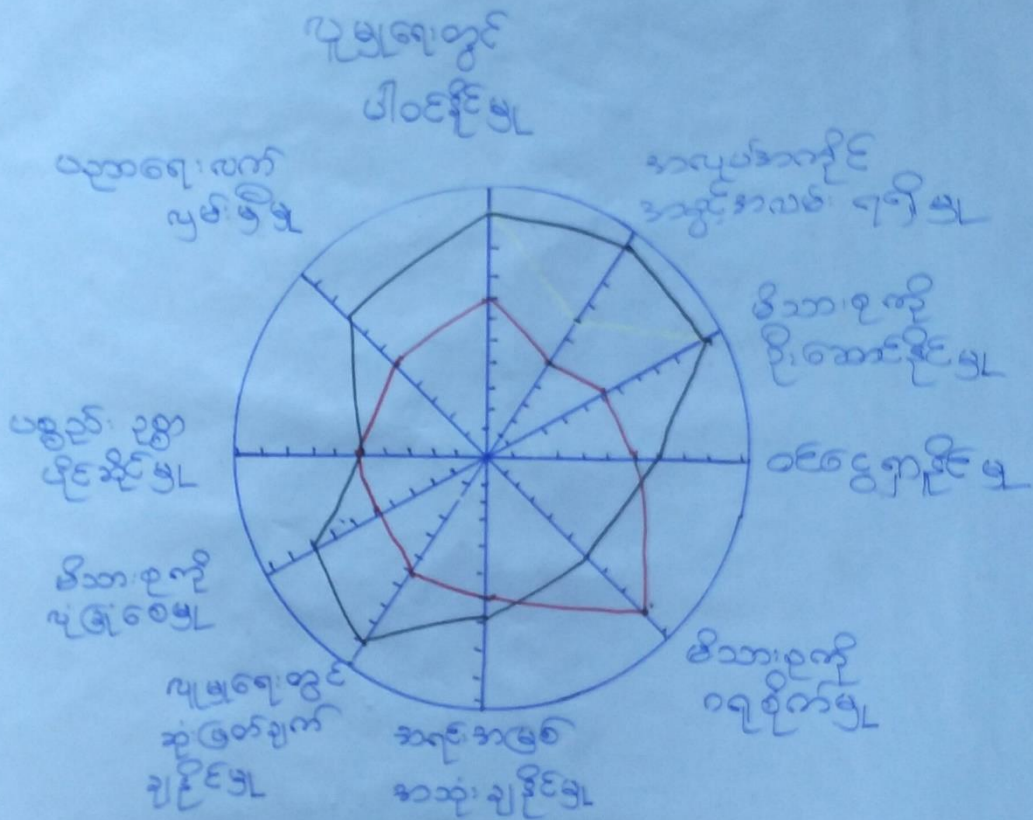 လူမှုရေးတွင်
ပါဝင်နိုင်မှု
အလုပ်အကိုင်
အခွင့်အလမ်း ရရှိမှု
မိသားစုကို
ဦးဆောင်နိုင်မှု
ဝင်ငွေရှာနိုင်မှု
မိသားစုကို
ဂရုစိုက်မှု
အရင်းအမြစ်
အသုံးချနိုင်မှု
လူမှုရေးတွင်
ဆုံးဖြတ်ချက်
ချနိုင်မှု
မိသားစုကို
လုံခြုံစေမှု
ပစ္စည်းဥစ္စာ
ပိုင်ဆိုင်မှု
ပညာရေးလက်
လှမ်းမှီမှု